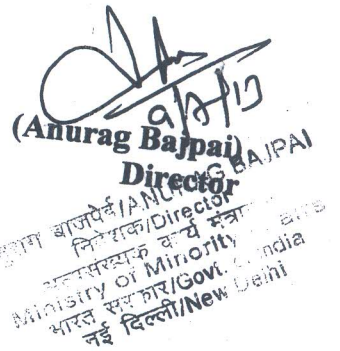 9/7/13
(Anurag Bajpai)
Director
अनुराग बाजपेई/ANURAG BAJPAI
निदेशक/Director
अल्पसंख्यक कार्य मंत्रालय
Ministry of Minority Affairs
भारत सरकार/Govt. of India
नई दिल्ली/New Delhi